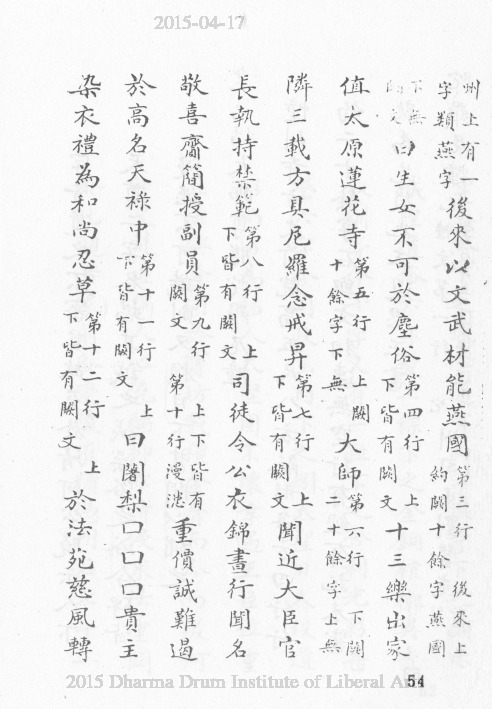 2015-04-17
州上有一字類燕字後來以文武材能燕國第三行後來上約闕十餘字燕國
下無曰生女不可於塵俗第四行上下皆有闕文十三樂出家
值太原蓮花寺第五行上闕十餘字下無大師第六行下闕二十餘字上無
隣三載方具尼羅念戒昇第七行上下皆有闕文聞近大臣官
長執持禁範第八行上下皆有闕文司徒令公衣錦晝行聞名
敬喜齋簡授副員第九行上下皆有闕文第十行漫漶重價誠難遏
於高名天祿中第十一行上下皆有闕文曰闍梨口口口貴主
染衣禮為和尚忍草第十二行上下皆有闕文於法苑慈風轉
2015 Dharma Drum Institute of Liberal Arts
54